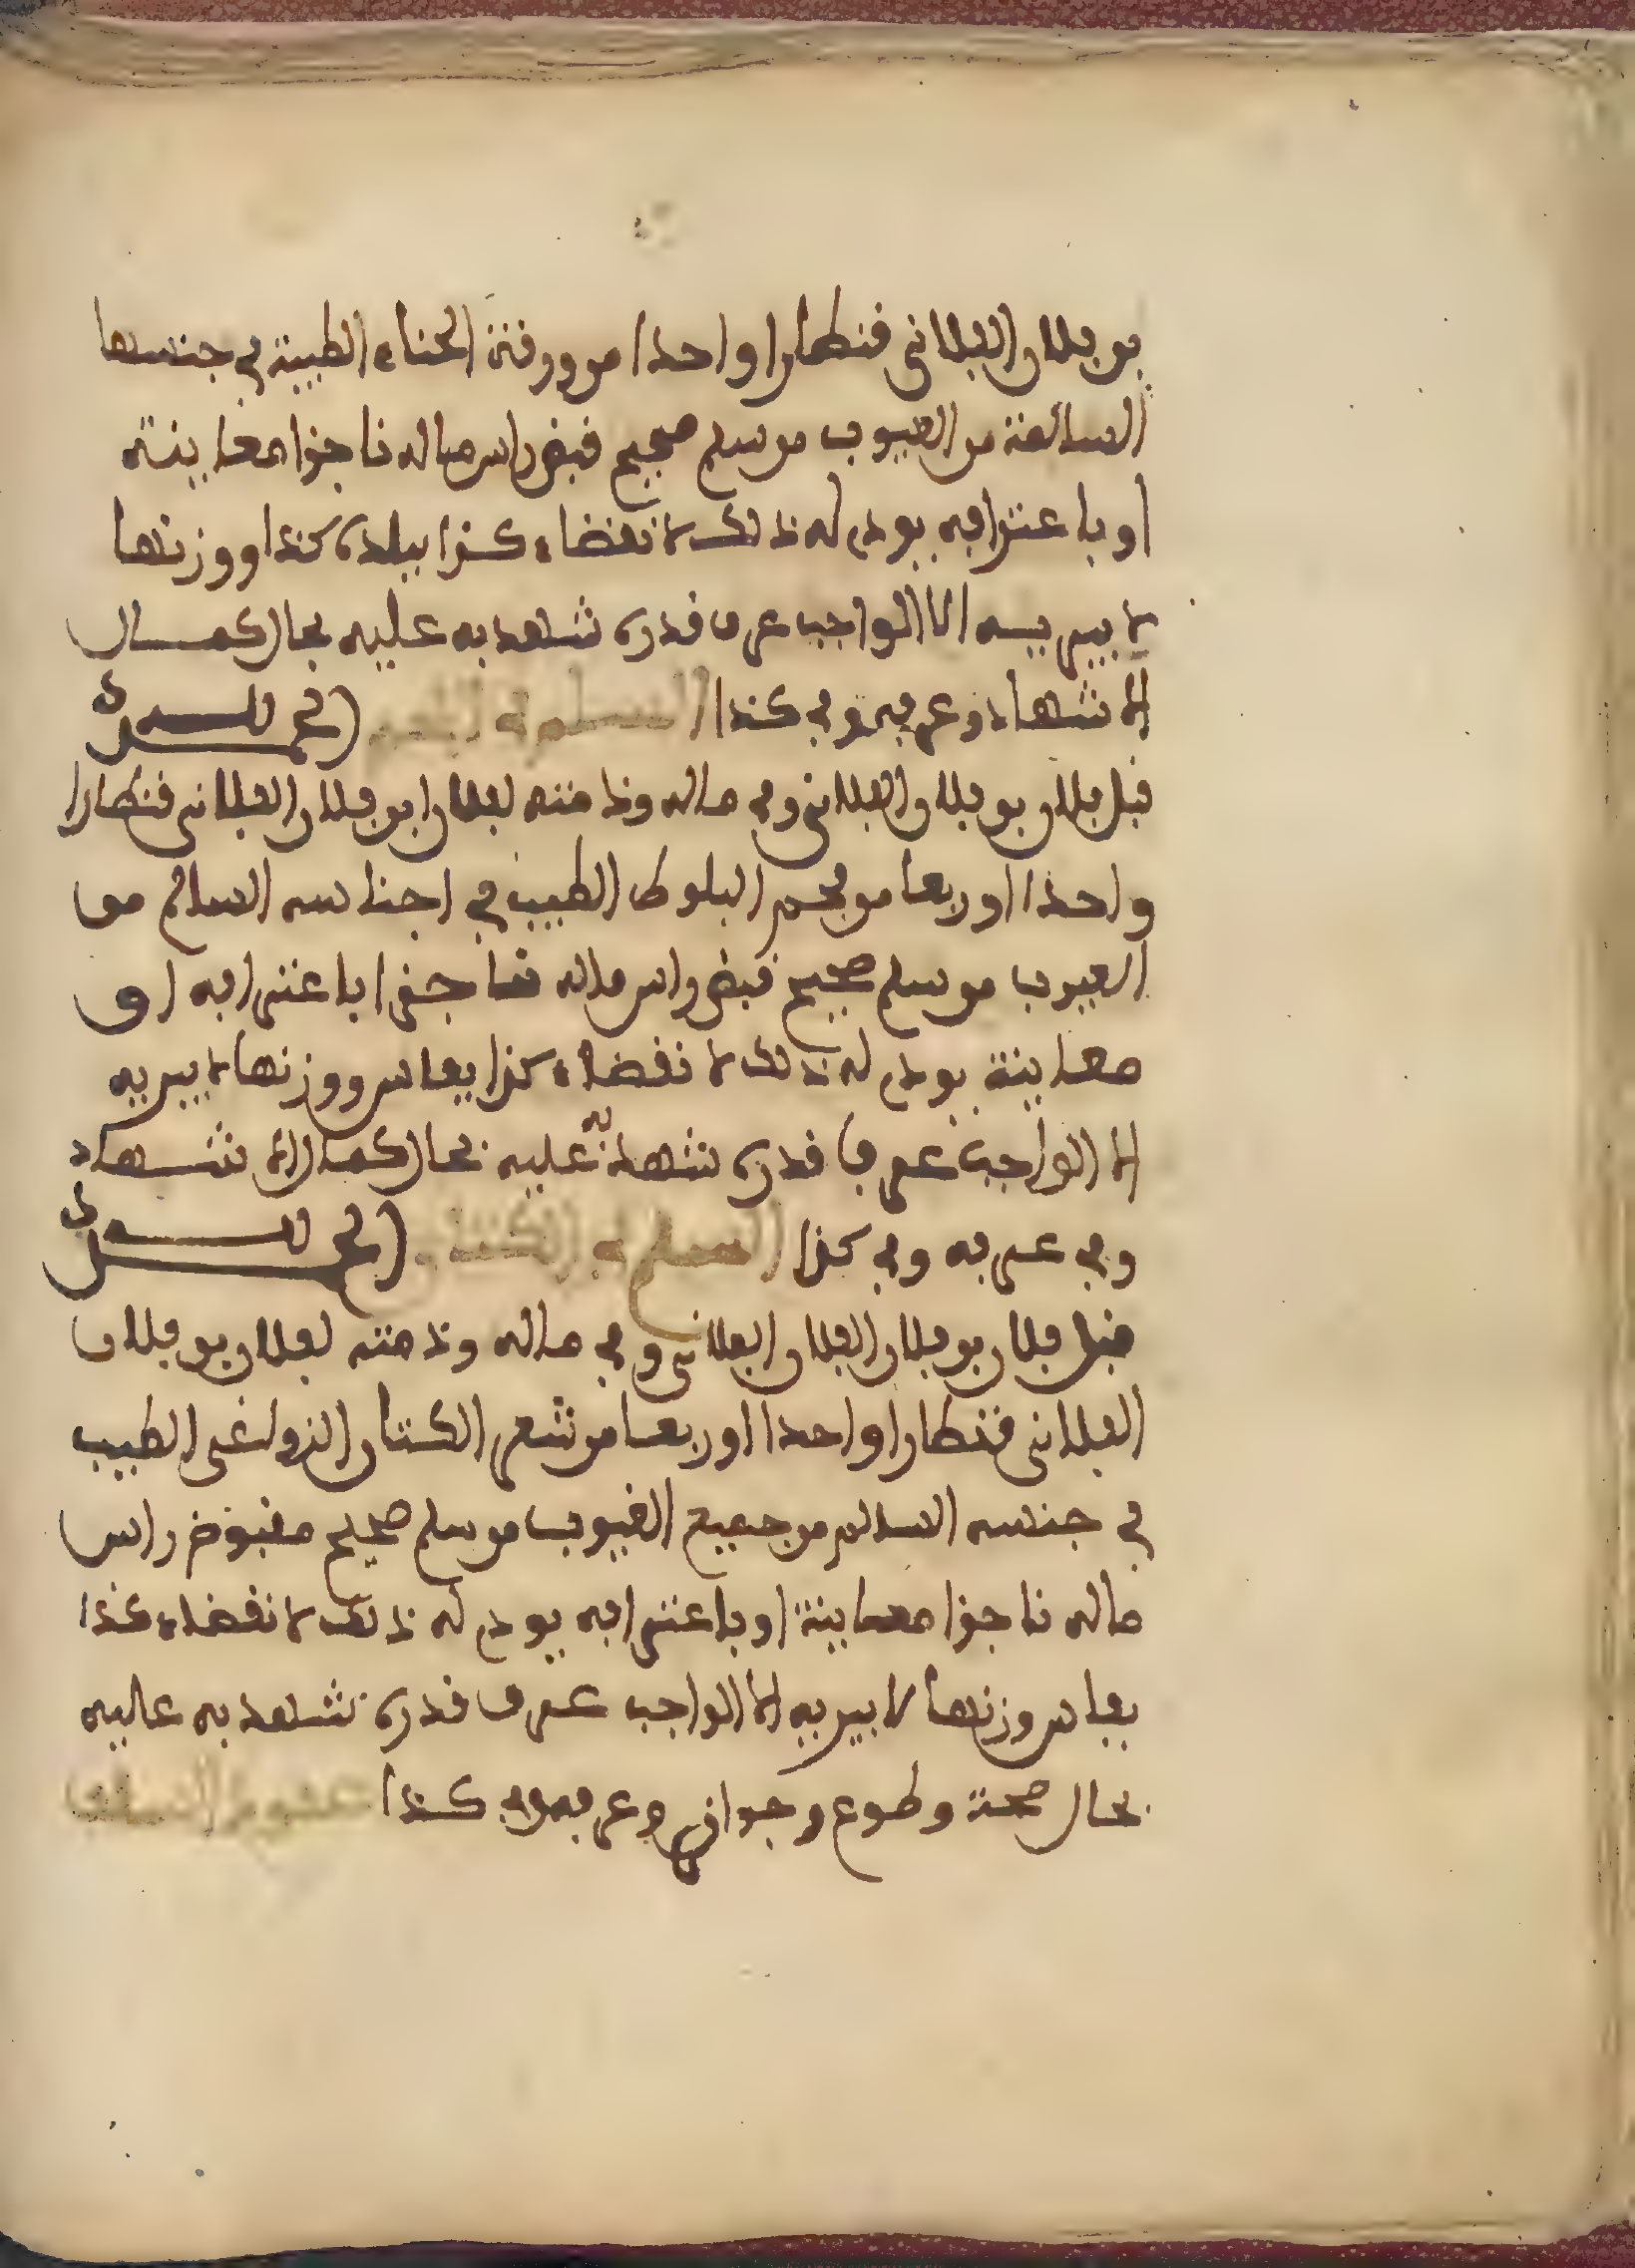 بن فلان الفلاني قنطارا واحدا من ورقة الحناء الطيبة في جنسها
السالمة من العيوب من سلم صحيح قبض راس ماله ناجزا معاينة
او باعترافه يودي له ذلك لانقضاء كذا ببلده كذا ووزنها
لا يبريه الا الواجب عرف قدره شهد به عليه بحال كمال
الاشهاد وعرفه وفي كذا السلم في الفحم الحمد لله
قبل فلان بن فلان الفلاني وفي ماله وذمته لفلان ابن فلان الفلاني قنطارا
واحدا او ربعا من فحم البلوط الطيب في اجناسه السالم من
العيوب من سلم صحيح قبض راس ماله ناجزا باعترافه او
معاينة يودي له ذلك لانقضاء كذا بفاس ووزنها لا يبريه
الا الواجب عرفا قدره شهد به عليه بحال كمال الاشهاد
وفي عرفه وفي كذا السلم في الكتان الحمد لله
قبل فلان بن فلان الفلان الفلاني وفي ماله وذمته لفلان بن فلان
الفلاني قنطارا واحدا او ربعا من شعر الكتان الزواغي الطيب
في جنسه السالم من جميع العيوب من سلم صحيح مقبوض راس
ماله ناجزا معاينة او باعترافه يودي له ذلك لانقضاء كذا
بفاس وزنها لا يبريه الا الواجب عرف قدره شهد به عليه
بحال صحة وطوع وجواز وعرفه وفي كذا